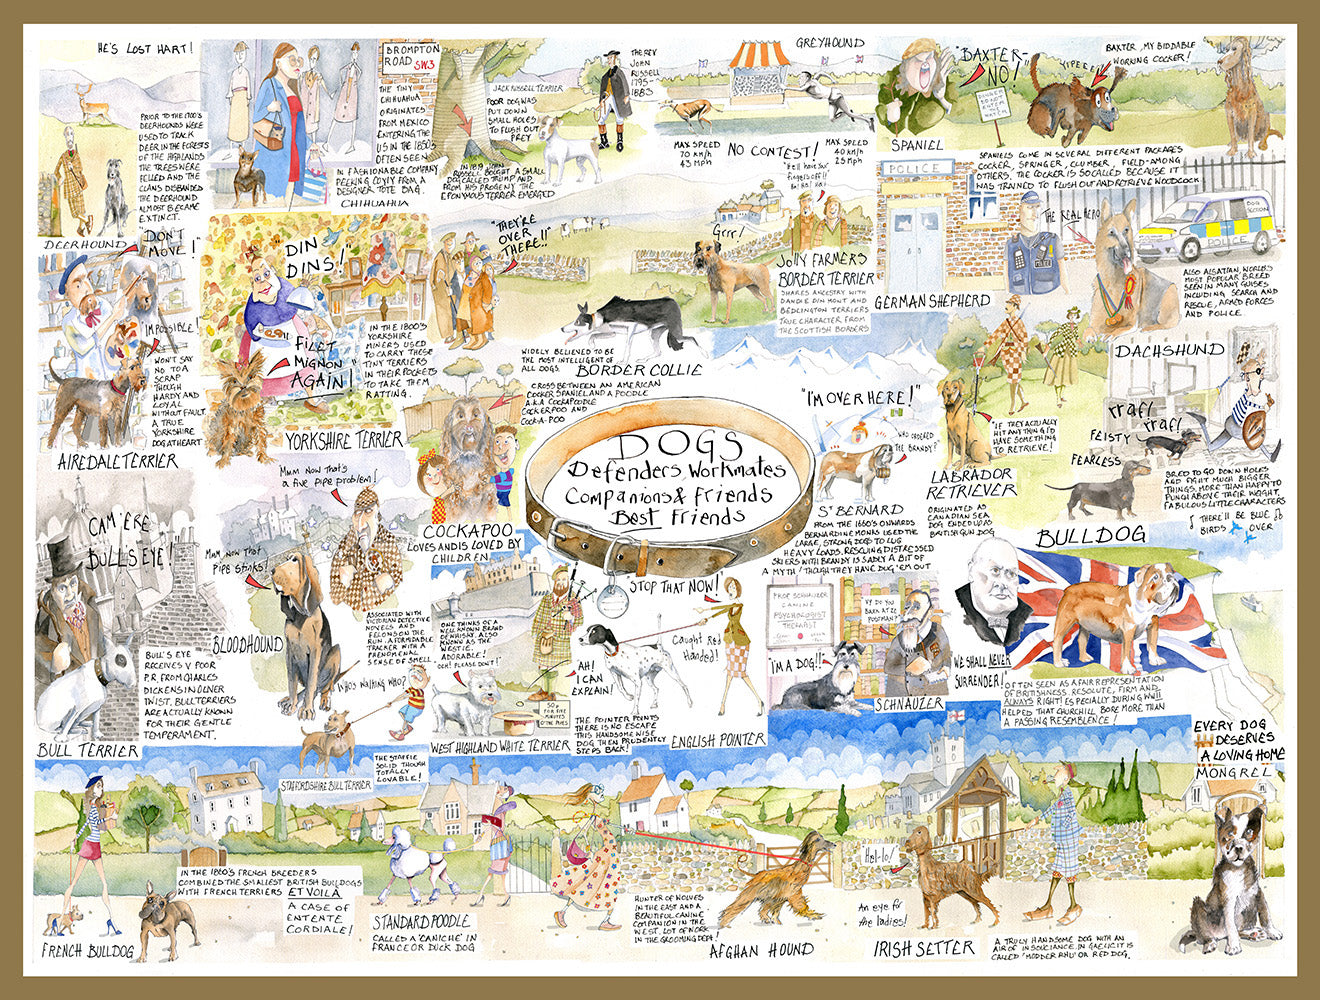 HE'S LOST HART!
PRIOR TO THE 1700'S
DEERHOUNDS WERE
USED TO TRACK
DEER IN THE FORESTS
OF THE HIGHLANDS
THE TREES WERE
FELLED AND THE
CLANS DISBANDED
THE DEERHOUND
ALMOST BECAME
EXTINCT.
DEERHOUND
BROMPTON
ROAD SW3
THE TINY
CHIHUAHUA
ORIGINATES
FROM MEXICO
ENTERING THE
US IN THE 1850'S
OFTEN SEEN
IN FASHIONABLE COMPANY
PEEKING COYLY FROM A
DESIGNER TOTE BAG.
CHIHUAHUA
JACK RUSSELL TERRIER
POOR DOG WAS
PUT DOWN
SMALL HOLES
TO FLUSH OUT
PREY
THE REV
JOHN
RUSSELL
1795-
1883
IN 1819 JOHN
RUSSELL BOUGHT A SMALL
DOG CALLED TRUMP AND
FROM HIS PROGENY THE
EPONYMOUS TERRIER EMERGED
GREYHOUND
MAX SPEED
70 km/h
43 MPH
NO CONTEST!
MAX SPEED
40 km/h
25 MPH
"BAXTER-
NO!"
YIPEEE
BAXTER, MY BIDDABLE
WORKING COCKER!
SPANIEL
SPANIELS COME IN SEVERAL DIFFERENT PACKAGES
COCKER, SPRINGER, CLUMBER, FIELD - AMONG
OTHERS. THE COCKER IS SO CALLED BECAUSE IT
WAS TRAINED TO FLUSH OUT AND RETRIEVE WOODCOCK
"DON'T
MOVE!"
"IMPOSSIBLE!
WON'T SAY
NO TO A
SCRAP
THOUGH
HARDY AND
LOYAL
WITHOUT FAULT.
A TRUE
YORKSHIRE
DOG AT HEART
AIREDALE TERRIER
"DIN
DINS!"
"FILET
MIGNON
AGAIN!"
IN THE 1800'S
YORKSHIRE
MINERS USED
TO CARRY THESE
TINY TERRIERS
IN THEIR POCKETS
TO TAKE THEM
RATTING.
YORKSHIRE TERRIER
"THEY'RE
OVER
THERE!!"
WIDELY BELIEVED TO BE
THE MOST INTELLIGENT OF
ALL DOGS.
BORDER COLLIE
Grrr!
JOLLY FARMERS
BORDER TERRIER
SHARES ANCESTRY WITH
DANDIE DINMONT AND
BEDLINGTON TERRIERS
TRUE CHARACTER FROM
THE SCOTTISH BORDERS
POLICE
THE REAL HERO
DOG
SECTION
POLICE
GERMAN SHEPHERD
ALSO ALSATIAN, WORLD'S
MOST POPULAR BREED
SEEN IN MANY GUISES
INCLUDING SEARCH AND
RESCUE, ARMED FORCES
AND POLICE.
CROSS BETWEEN AN AMERICAN
COCKER SPANIEL AND A POODLE
A.K.A COCKAPOODLE
COCKERPOO AND
COCK-A-POO
COCKAPOO
LOVES AND IS LOVED BY
CHILDREN
DOGS
Defenders, Workmates
Companions & Friends
Best Friends
"I'M OVER HERE!"
WHO ORDERED
THE BRANDY?
ST BERNARD
FROM THE 1660'S ONWARDS
BERNARDINE MONKS USED THE
LARGE, STRONG DOGS TO LUG
HEAVY LOADS. RESCUING DISTRESSED
SKIERS WITH BRANDY IS SADLY A BIT OF
A MYTH! THOUGH THEY HAVE DUG 'EM OUT
"IF THEY ACTUALLY
HIT ANYTHING I'D
HAVE SOMETHING
TO RETRIEVE!
LABRADOR
RETRIEVER
ORIGINATED AS
CANADIAN SEA
DOG ENDED UP AS
BRITISH GUN DOG
DACHSHUND
rraf!
rraf!
FEISTY
FEARLESS
BRED TO GO DOWN HOLES
AND FIGHT MUCH BIGGER
THINGS. MORE THAN HAPPY TO
PUNCH ABOVE THEIR WEIGHT.
FABULOUS LITTLE CHARACTERS
THERE'LL BE BLUE
BIRDS OVER
CAM 'ERE
BULL'S EYE!"
BULL'S EYE
RECEIVES V POOR
P.R. FROM CHARLES
DICKENS IN OLIVER
TWIST, BULL TERRIERS
ARE ACTUALLY KNOWN
FOR THEIR GENTLE
TEMPERAMENT.
BULL TERRIER
Mum Now that's
a five pipe problem!
Mum Now that
Pipe stinks!
BLOODHOUND
ASSOCIATED WITH
VICTORIAN DETECTIVE
NOVELS AND
FELONS ON THE
RUN. A FORMIDABLE
TRACKER WITH A
PHENOMENAL
SENSE OF SMELL.
WHO'S WALKING WHO?
STAFFORDSHIRE BULL TERRIER
THE STAFFIE
SOLID THOUGH
TOTALLY
LOVABLE!
ONE THINKS OF A
WELL KNOWN BRAND
OF WHISKY. ALSO
KNOWN AS THE
WESTIE.
ADORABLE!
OCH! PLEASE DON'T!
50P
FOR FIVE
MINUTES
WEST HIGHLAND WHITE TERRIER
"STOP THAT NOW!"
Caught Red
Handed!
AH!
I CAN
EXPLAIN!
THE POINTER POINTS
THERE IS NO ESCAPE
THIS HANDSOME WISE
DOG THEN PRUDENTLY
STEPS BACK!
ENGLISH POINTER
PROF SCHNAUZER
CANINE
PSYCHOLOGIST
THERAPIST
VY DO YOU
BARK AT ZE
POSTMAN?
"I'M A DOG!!"
SCHNAUZER
BULLDOG
WE SHALL NEVER
SURRENDER!
OFTEN SEEN AS A FAIR REPRESENTATION
OF BRITISHNESS. RESOLUTE, FIRM AND
ALWAYS RIGHT! ESPECIALLY DURING WWII
HELPED THAT CHURCHILL BORE MORE THAN
A PASSING RESEMBLENCE!
EVERY DOG
DESERVES
A LOVING HOME
MONGREL
IN THE 1860'S FRENCH BREEDERS
COMBINED THE SMALLEST BRITISH BULLDOGS
WITH FRENCH TERRIERS ET VOILÀ
A CASE OF
ENTENTE
CORDIALE!
FRENCH BULLDOG
STANDARD POODLE
CALLED A 'CANICHE' IN
FRANCE OR DUCK DOG
HUNTER OF WOLVES
IN THE EAST AND A
BEAUTIFUL CANINE
COMPANION IN THE
WEST. LOT OF WORK
IN THE GROOMING DEPT!
AFGHAN HOUND
"Hel-lo!
An eye for
the ladies!
IRISH SETTER
A TRULY HANDSOME DOG WITH AN
AIR OF INSOUCIANCE. IN GAELIC IT IS
CALLED 'MODDER RHU' OR RED DOG.